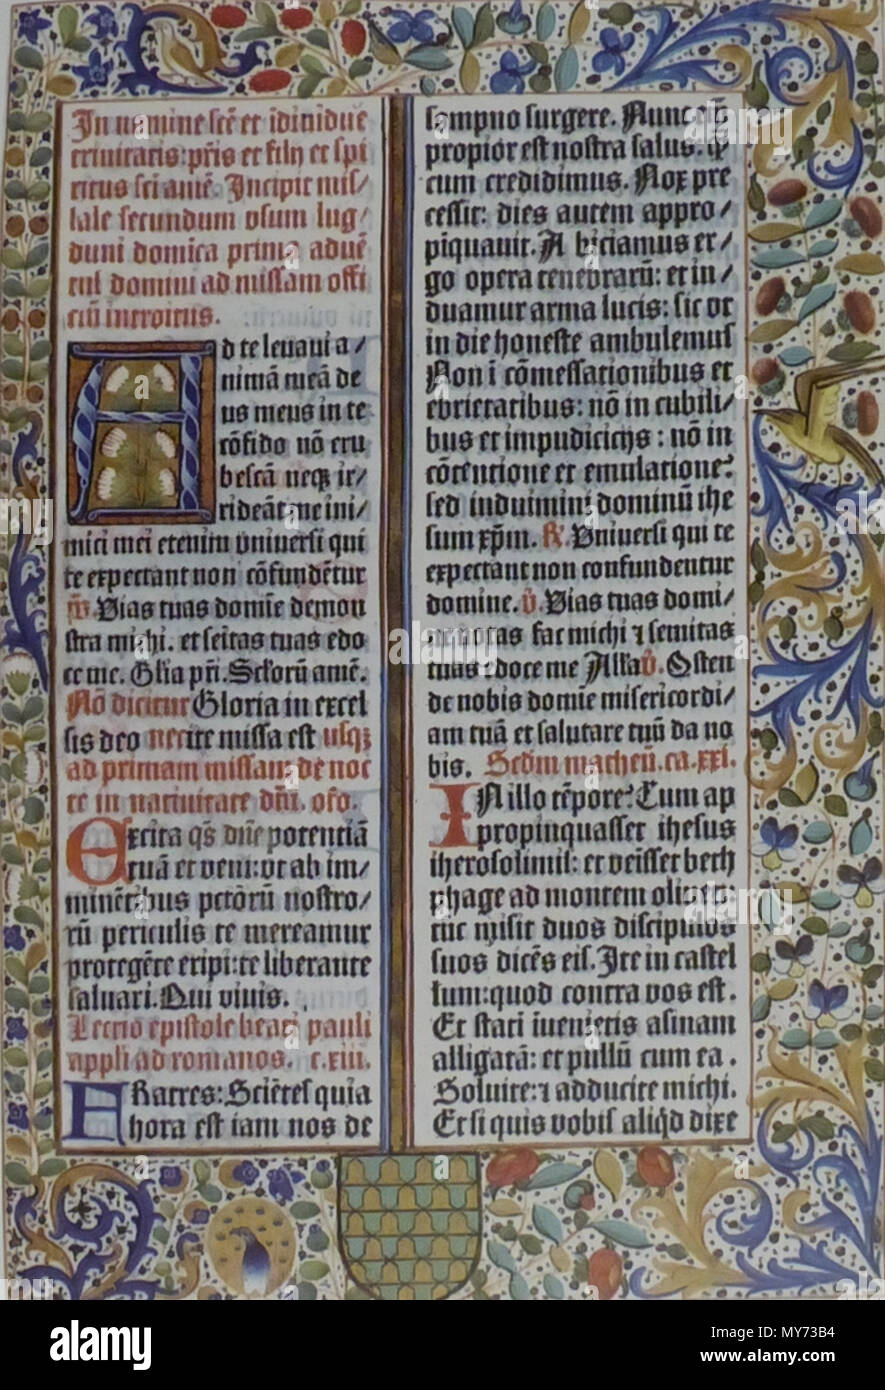 In nomine scē et īdiuidue
trinitatis: pr̄is et filij et spi
ritus sc̄i amē. Incipit mis/
sale secundum vsum lug/
duni domīca prima aduē
tus domini ad missam offi
ciū introitus.
Ad te leuaui a/
nimā meā de
us meus in te
cōfido nō eru
bescā neqꝫ ir/
rideāt me ini/
mici mei etenim vniuersi qui
te expectant non cōfundētur
v̄s. Vias tuas domīe demon
stra michi. et sēitas tuas edo
ce me. Gl̄ia pr̄i. Sc̄l'orū amē.
Nō dicitur Gloria in excel
sis deo nec ite missa est usqꝫ
ad primam missam de noc
te in natiuitate dn̄i. or̄o.
Excita q̄s dn̄e potentiā
tuā et veni: vt ab im/
minētibus pctōrū nostro/
rū periculis te mereamur
protegēte eripi: te liberante
saluari. Qui viuis.
Lectio epistole beati pauli
appl̄i ad romanos. c. xiii.
FRatres: Sciētes quia
hora est iam nos de
sompno surgere. Nunc em̄
propior est nostra salus. qͣ̄
cum credidimus. Nox pre
cessit: dies autem appro/
piquauit. Abiciamus er/
go opera tenebrarū: et in/
duamur arma lucis: sic vt
in die honeste ambulemus
Non ī cōmessationibus et
ebrietatibus: nō in cubili/
bus et impudicicijs: nō in
cōtentione et emulatione:
sed induimini dominū ihe
sum xp̄m. R̄. Vniuersi qui te
expectant non confundentur
domine. v̄. Vias tuas domi/
ne notas fac michi ⁊ semitas
tuas edoce me All'a v̄. Osten
de nobis domīe misericordi/
am tuā et salutare tuū da no
bis. Scd̄m matheū. ca. xxi.
IN illo tēpore: Cum ap
propinquasset ihesus
iherosolimis: et veīsset beth
phage ad montem oliueti:
tūc misit duos discipulos
suos dicēs eis. Ite in castel
lum: quod contra vos est.
Et stati īuenietis asinam
alligatā: et pullū cum ea.
Soluite: ⁊ adducite michi.
Et si quis vobis aliqd̄ dixe
alamy
Image ID: MY73B4
www.alamy.com